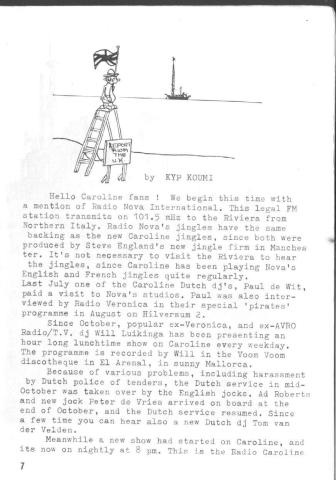 REPORT
FROM
THE
U.K
by KYP KOUMI
Hello Caroline fans ! We begin this time with
a mention of Radio Nova International. This legal FM
station transmits on 101.5 mHz to the Riviera from
Northern Italy. Radio Nova's jingles have the same
backing as the new Caroline jingles, since both were
produced by Steve England's new jingle firm in Manches
ter. It's not necessary to visit the Riviera to hear
the jingles, since Caroline has been playing Nova's
English and French jingles quite regularly.
Last July one of the Caroline Dutch dj's, Paul de Wit,
paid a visit to Nova's studios. Paul was also inter-
viewed by Radio Veronica in their special 'pirates'
programme in August on Hilversum 2.
Since October, popular ex-Veronica, and ex-AVRO
Radio/T.V. dj Will Luikinga has been presenting an
hour long lunchtime show on Caroline every weekday.
The programme is recorded by Will in the Voom Voom
discotheque in El Arenal, in sunny Mallorca.
Because of various problems, including harassment
by Dutch police of tenders, the Dutch service in mid-
October was taken over by the English jocks. Ad Roberts
and new jock Peter de Vries arrived on board at the
end of October, and the Dutch service resumed. Since
a few time you can hear also a new Dutch dj Tom van
der Velden.
Meanwhile a new show had started on Caroline, and
its now on nightly at 8 pm. This is the Radio Caroline
7